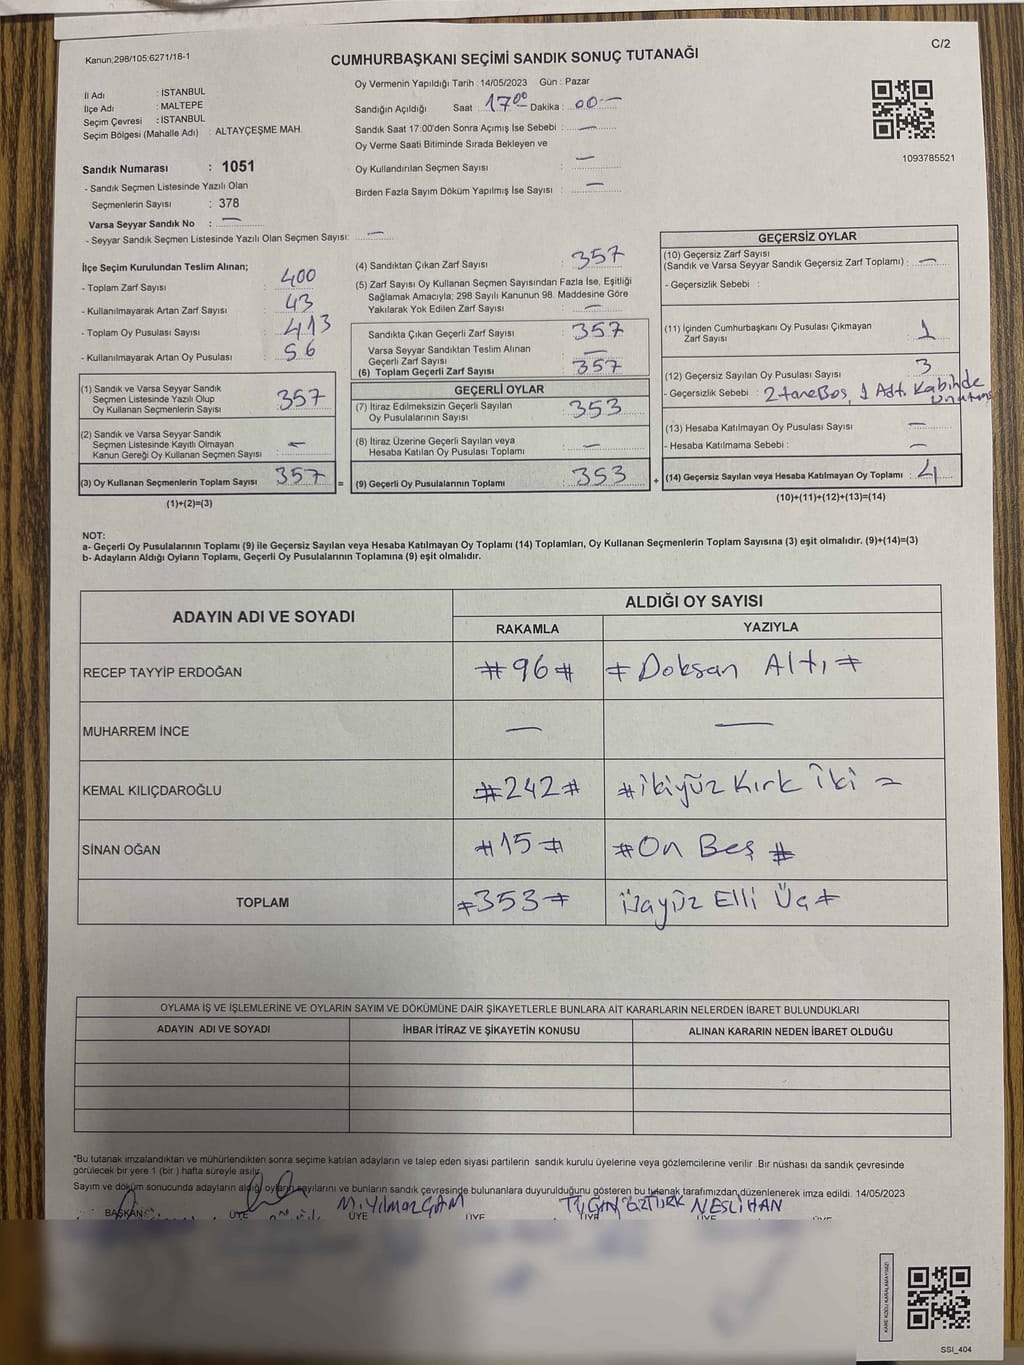 Kanun;298/105;6271/18-1
C/2
CUMHURBAŞKANI SEÇİMİ SANDIK SONUÇ TUTANAĞI
İl Adı : İSTANBUL
İlçe Adı : MALTEPE
Seçim Çevresi : İSTANBUL
Seçim Bölgesi (Mahalle Adı) : ALTAYÇEŞME MAH.
Sandık Numarası : 1051
- Sandık Seçmen Listesinde Yazılı Olan
Seçmenlerin Sayısı : 378
Varsa Seyyar Sandık No : —
- Seyyar Sandık Seçmen Listesinde Yazılı Olan Seçmen Sayısı: —
Oy Vermenin Yapıldığı Tarih : 14/05/2023 Gün : Pazar
Sandığın Açıldığı Saat : 17⁰⁰ Dakika : 00 —
Sandık Saat 17:00'den Sonra Açımış İse Sebebi : —
Oy Verme Saati Bitiminde Sırada Bekleyen ve
Oy Kullandırılan Seçmen Sayısı : —
Birden Fazla Sayım Döküm Yapılmış İse Sayısı : —
1093785521
İlçe Seçim Kurulundan Teslim Alınan;
- Toplam Zarf Sayısı : 400
- Kullanılmayarak Artan Zarf Sayısı : 43
- Toplam Oy Pusulası Sayısı : 413
- Kullanılmayarak Artan Oy Pusulası : 56
(1) Sandık ve Varsa Seyyar Sandık
Seçmen Listesinde Yazılı Olup
Oy Kullanan Seçmenlerin Sayısı : 357
(2) Sandık ve Varsa Seyyar Sandık
Seçmen Listesinde Kayıtlı Olmayan
Kanun Gereği Oy Kullanan Seçmen Sayısı : —
(3) Oy Kullanan Seçmenlerin Toplam Sayısı : 357 =
(1)+(2)=(3)
(4) Sandıktan Çıkan Zarf Sayısı : 357
(5) Zarf Sayısı Oy Kullanan Seçmen Sayısından Fazla İse, Eşitliği
Sağlamak Amacıyla; 298 Sayılı Kanunun 98. Maddesine Göre
Yakılarak Yok Edilen Zarf Sayısı : —
Sandıkta Çıkan Geçerli Zarf Sayısı : 357
Varsa Seyyar Sandıktan Teslim Alınan
Geçerli Zarf Sayısı : —
(6) Toplam Geçerli Zarf Sayısı : 357
GEÇERLİ OYLAR
(7) İtiraz Edilmeksizin Geçerli Sayılan
Oy Pusulalarının Sayısı : 353
(8) İtiraz Üzerine Geçerli Sayılan veya
Hesaba Katılan Oy Pusulası Toplamı : —
(9) Geçerli Oy Pusulalarının Toplamı : 353 +
GEÇERSİZ OYLAR
(10) Geçersiz Zarf Sayısı
(Sandık ve Varsa Seyyar Sandık Geçersiz Zarf Toplamı) : —
- Geçersizlik Sebebi :
(11) İçinden Cumhurbaşkanı Oy Pusulası Çıkmayan
Zarf Sayısı : 1
(12) Geçersiz Sayılan Oy Pusulası Sayısı : 3
- Geçersizlik Sebebi : 2 tane Boş, 1 Adt. Kabinde
(13) Hesaba Katılmayan Oy Pusulası Sayısı : —
- Hesaba Katılmama Sebebi : —
(14) Geçersiz Sayılan veya Hesaba Katılmayan Oy Toplamı : 4
(10)+(11)+(12)+(13)=(14)
NOT:
a- Geçerli Oy Pusulalarının Toplamı (9) ile Geçersiz Sayılan veya Hesaba Katılmayan Oy Toplamı (14) Toplamları, Oy Kullanan Seçmenlerin Toplam Sayısına (3) eşit olmalıdır. (9)+(14)=(3)
b- Adayların Aldığı Oyların Toplamı, Geçerli Oy Pusulalarının Toplamına (9) eşit olmalıdır.
ADAYIN ADI VE SOYADI
ALDIĞI OY SAYISI
RAKAMLA YAZIYLA
RECEP TAYYİP ERDOĞAN # 96 # # Doksan Altı #
MUHARREM İNCE — —
KEMAL KILIÇDAROĞLU # 242 # # İkiyüz Kırk İki =
SİNAN OĞAN # 15 # # On Beş #
TOPLAM # 353 # Üçyüz Elli Üç #
OYLAMA İŞ VE İŞLEMLERİNE VE OYLARIN SAYIM VE DÖKÜMÜNE DAİR ŞİKAYETLERLE BUNLARA AİT KARARLARIN NELERDEN İBARET BULUNDUKLARI
ADAYIN ADI VE SOYADI İHBAR İTİRAZ VE ŞİKAYETİN KONUSU ALINAN KARARIN NEDEN İBARET OLDUĞU
*Bu tutanak imzalandıktan ve mühürlendikten sonra seçime katılan adayların ve talep eden siyasi partilerin sandık kurulu üyelerine veya gözlemcilerine verilir. Bir nüshası da sandık çevresinde
görülecek bir yere 1 (bir) hafta süreyle asılır.
Sayım ve döküm sonucunda adayların aldığı oyların sayılarını ve bunların sandık çevresinde bulunanlara duyurulduğunu gösteren bu tutanak tarafımızdan düzenlenerek imza edildi. 14/05/2023
M. YILMAZÇAM TÜLAY ÖZTÜRK NESLİHAN
BAŞKAN ÜYE ÜYE ÜYE ÜYE ÜYE ÜYE
KARE KODU KARALAMAYINIZ!
SSI_404